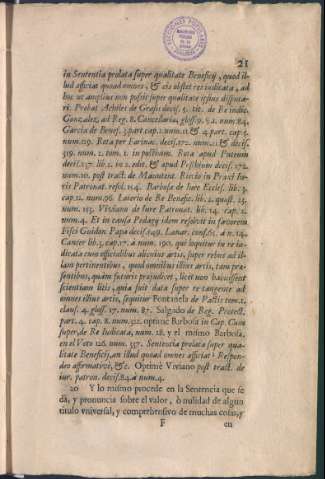 21
in Sententia prolata super qualitate Beneficij, quod illud afficiat quoad omnes, & eis obstet res iudicata, ad
hoc ut amplius non possit super qualitate ipsius disputari. Probat Achiles de Grasis decis. 5. tit. de Re iudic.
Gonzalez, ad Reg. 8. Cancellaria, gloss. 9. § 2. num. 84.
Garcia de Benef. 3. part. cap. 2. num. 11. & 4. part. cap. 5.
num. 119. Rota per Farinac. decis. 172. num. 2. & decis.
519. num. 2. tom. 1. in posthum. Rota apud Puteum
decis. 237. lib. 1. in 2. edit. & apud Posthium decis. 572.
num. 10. post tract. de Manuten. Riccio in Praxi Iuris Patronat. resol. 114. Barbosa de Iure Eccles. lib. 3.
cap. 12. num. 96. Loterio de Re Benefic. lib. 2. quæst. 25.
num. 153. Viviano de Iure Patronat. lib. 14. cap. 1.
num. 4. Et in causa Pedagij idem resolvit in favorem
Fisci Guidon. Papa decis. 149. Lanar. cons. 61. à n. 14.
Cancer lib. 3. cap. 17. à num. 190. que loquitur in re iudicata cum officialibus alicuius artis, super rebus ad illam pertinentibus, quod omnibus illius artis, tam præsentibus, quàm futuris præjudicet, licèt non habuissent
scientiam litis, quia fuit lata super re tangente ad
omnes illius artis, sequitur Fontanela de Pactis tom. 2.
claus. 4. gloss. 17. num. 87. Salgado de Reg. Protect.
part. 4. cap. 8. num. 312. optimè Barbosa in Cap. Cum
super, de Re Iudicata, num. 18. y el mismo Barbosa,
en el Voto 126. num. 357. Sententia prolata super qualitate Beneficij, an illud quoad omnes afficiat? Respondeo affirmativè, &c. Optimè Viviano post tract. de
iur. patron. decis. 84. à num. 4.
20 Y lo mismo procede en la Sentencia que se
dà, y pronuncia sobre el valor, ò nulidad de algun
titulo vniversal, y comprehensivo de muchas cosas, y
F en